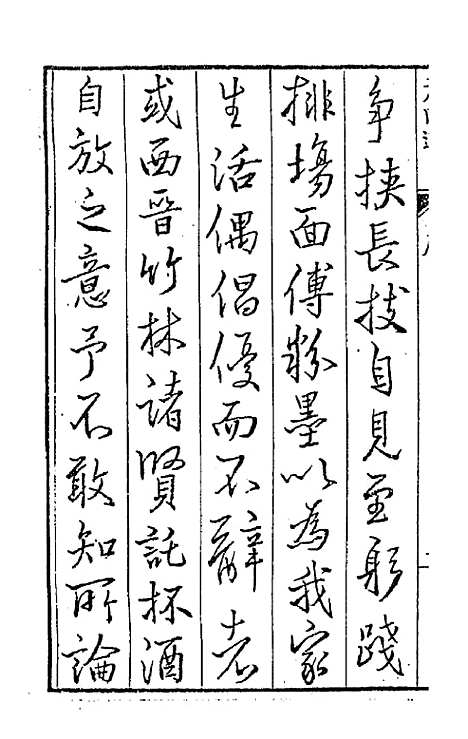 争挾長技自見至躬踐
排塲面傅粉墨以為我家
生活偶倡優而不辭者
或西晉竹林諸賢託杯酒
自放之意予不敢知所論